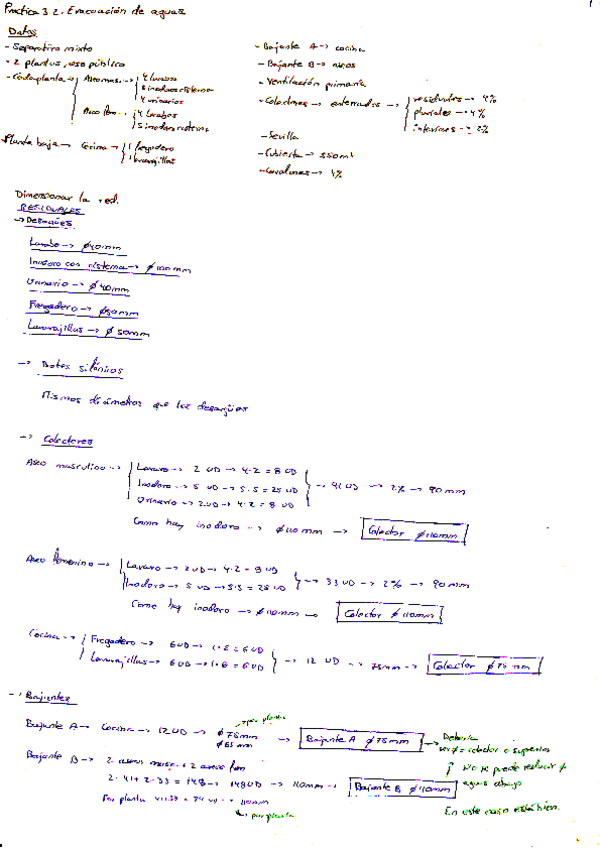 Practica 3.2. Evacuación de aguas
1
Datos
- Separativa mixto
- 2 plantas, uso público
- Cada planta → Aseo mas. → 4 lavabos
5 inodoros cisterna
4 urinarios
Aseo fem. → 4 lavabos
5 inodoros cisterna
Planta baja → Cocina → 1 fregadero
1 lavavajillas
- Bajante A → cocina
- Bajante B → aseos
- Ventilación primaria
- Colectores → enterrados → residuales → 4%
pluviales → 4%
interiores → 2%
- Sevilla
- Cubierta → 550 m²
- Canalones → 1%
Dimensionar la red.
RESIDUALES
→ Desagües
Lavabo → ϕ40mm
Inodoro con cisterna → ϕ100mm
Urinario → ϕ40mm
Fregadero → ϕ50mm
Lavavajillas → ϕ50mm
→ Botes sifónicos
Mismos diámetros que los desagües
→ Colectores
Aseo masculino → Lavavo → 2 UD → 4·2 = 8 UD
Inodoro → 5 UD → 5·5 = 25 UD
Urinario → 2UD → 4·2 = 8 UD
→ 41 UD → 2% → 90 mm
Como hay inodoro → ϕ110mm → Colector ϕ110mm
Aseo femenino → Lavavo → 2UD → 4·2 = 8 UD
Inodoro → 5 UD → 5·5 = 25 UD
→ 33 UD → 2% → 90 mm
Como hay inodoro → ϕ110mm → Colector ϕ110mm
Cocina → Fregadero → 6UD → 1·6 = 6UD
Lavavajillas → 6UD → 1·6 = 6UD
→ 12 UD → 75mm → Colector ϕ75 mm
→ Bajantes
Bajante A → Cocina → 12 UD → ϕ75mm → por planta
ϕ63 mm
→ Bajante A ϕ75mm → Debería
ser ϕ = colector o superior
No se puede reducir ϕ
aguas abajo
En este caso está bien.
Bajante B → 2 aseos masc. + 2 aseos fem
2·41 + 2·33 = 148 → 148UD → 110mm → Bajante B ϕ110mm
Por planta 41+33 = 74 UD → 110mm
→ por planta